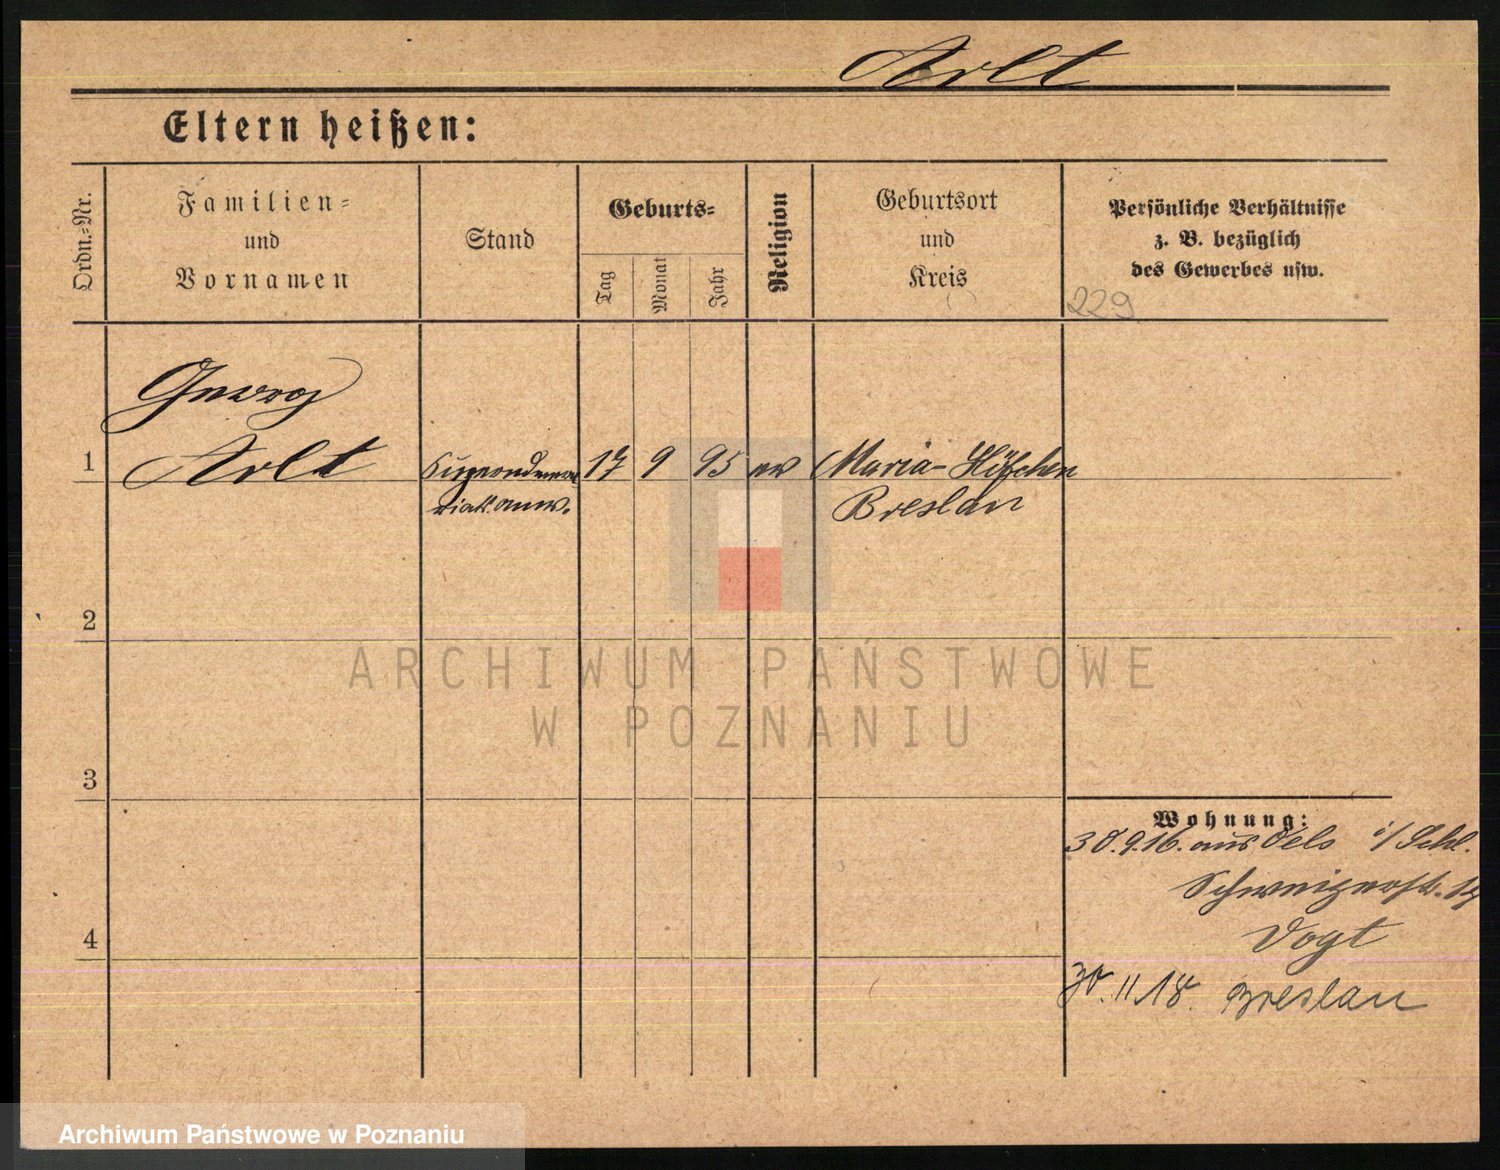 Arlt
Eltern heißen:
Ordn.-Nr.
Familien-
und
Vornamen
Stand
Geburts-
Tag
Monat
Jahr
Religion
Geburtsort
und
Kreis
Persönliche Verhältnisse
z. B. bezüglich
des Gewerbes usw.
229
Georg
1 Arlt Superndume= 17 9 95 ev Maria-Höfchen
riats. anw. Breslau
2
ARCHIWUM PAŃSTWOWE
W POZNANIU
3
Wohnung:
30.9.16. aus Oels i/Schl.
Vogt
4
30.11.18. Breslau
Archiwum Państwowe w Poznaniu